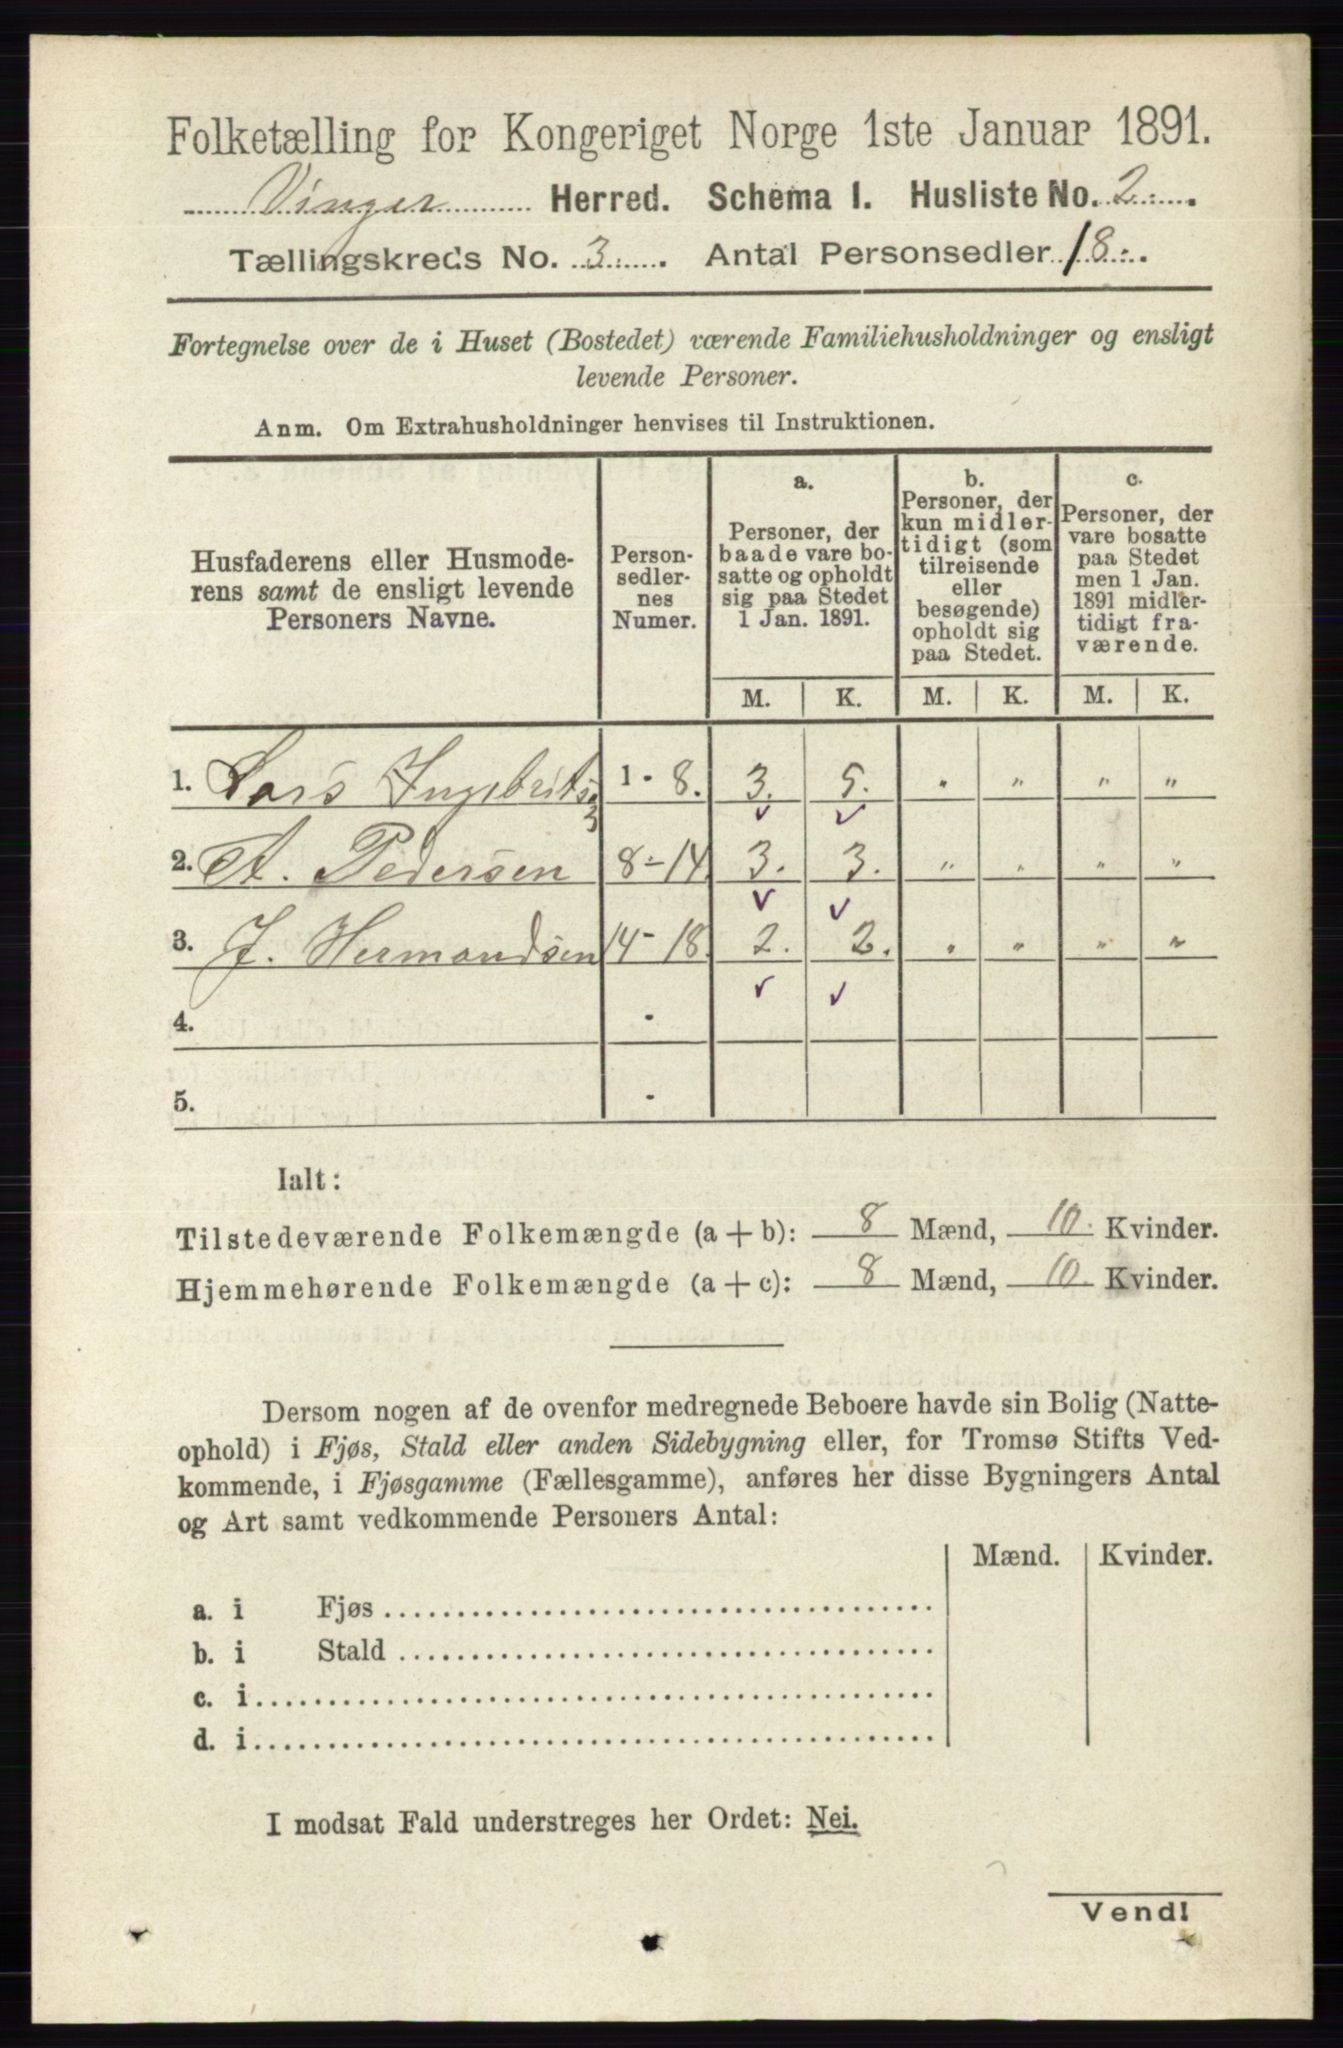 Folketælling for Kongeriget Norge 1ste Januar 1891.
Vinger Herred. Schema I. Husliste No. 2.
Tællingskreds No. 3. Antal Personsedler 18.
Fortegnelse over de i Huset (Bostedet) værende Familiehusholdninger og ensligt
levende Personer.
Anm. Om Extrahusholdninger henvises til Instruktionen.
Husfaderens eller Husmode-
rens samt de ensligt levende
Personers Navne.
Person-
sedler-
nes
Numer.
a.
Personer, der
baade vare bo-
satte og opholdt
sig paa Stedet
1 Jan. 1891.
b.
Personer, der
kun midler-
tidigt (som
tilreisende
eller
besøgende)
opholdt sig
paa Stedet.
c.
Personer, der
vare bosatte
paa Stedet
men 1 Jan.
1891 midler-
tidigt fra-
værende.
M. K. M. K. M. K.
1. Lars Ingebrits 1 - 8. 3. 5. " " " "
2. A. Pedersen 8 - 14 3. 3. " " " "
3. J. Hermandsen 14 - 18. 2. 2. " " " "
4. -
5. -
Ialt:
Tilstedeværende Folkemængde (a + b): 8 Mænd, 10. Kvinder.
Hjemmehørende Folkemængde (a + c): 8 Mænd, 10 Kvinder.
Dersom nogen af de ovenfor medregnede Beboere havde sin Bolig (Natte-
ophold) i Fjøs, Stald eller anden Sidebygning eller, for Tromsø Stifts Ved-
kommende, i Fjøsgamme (Fællesgamme), anføres her disse Bygningers Antal
og Art samt vedkommende Personers Antal:
Mænd. Kvinder.
a. i Fjøs
b. i Stald
c. i
d. i
I modsat Fald understreges her Ordet: Nei.
Vend!